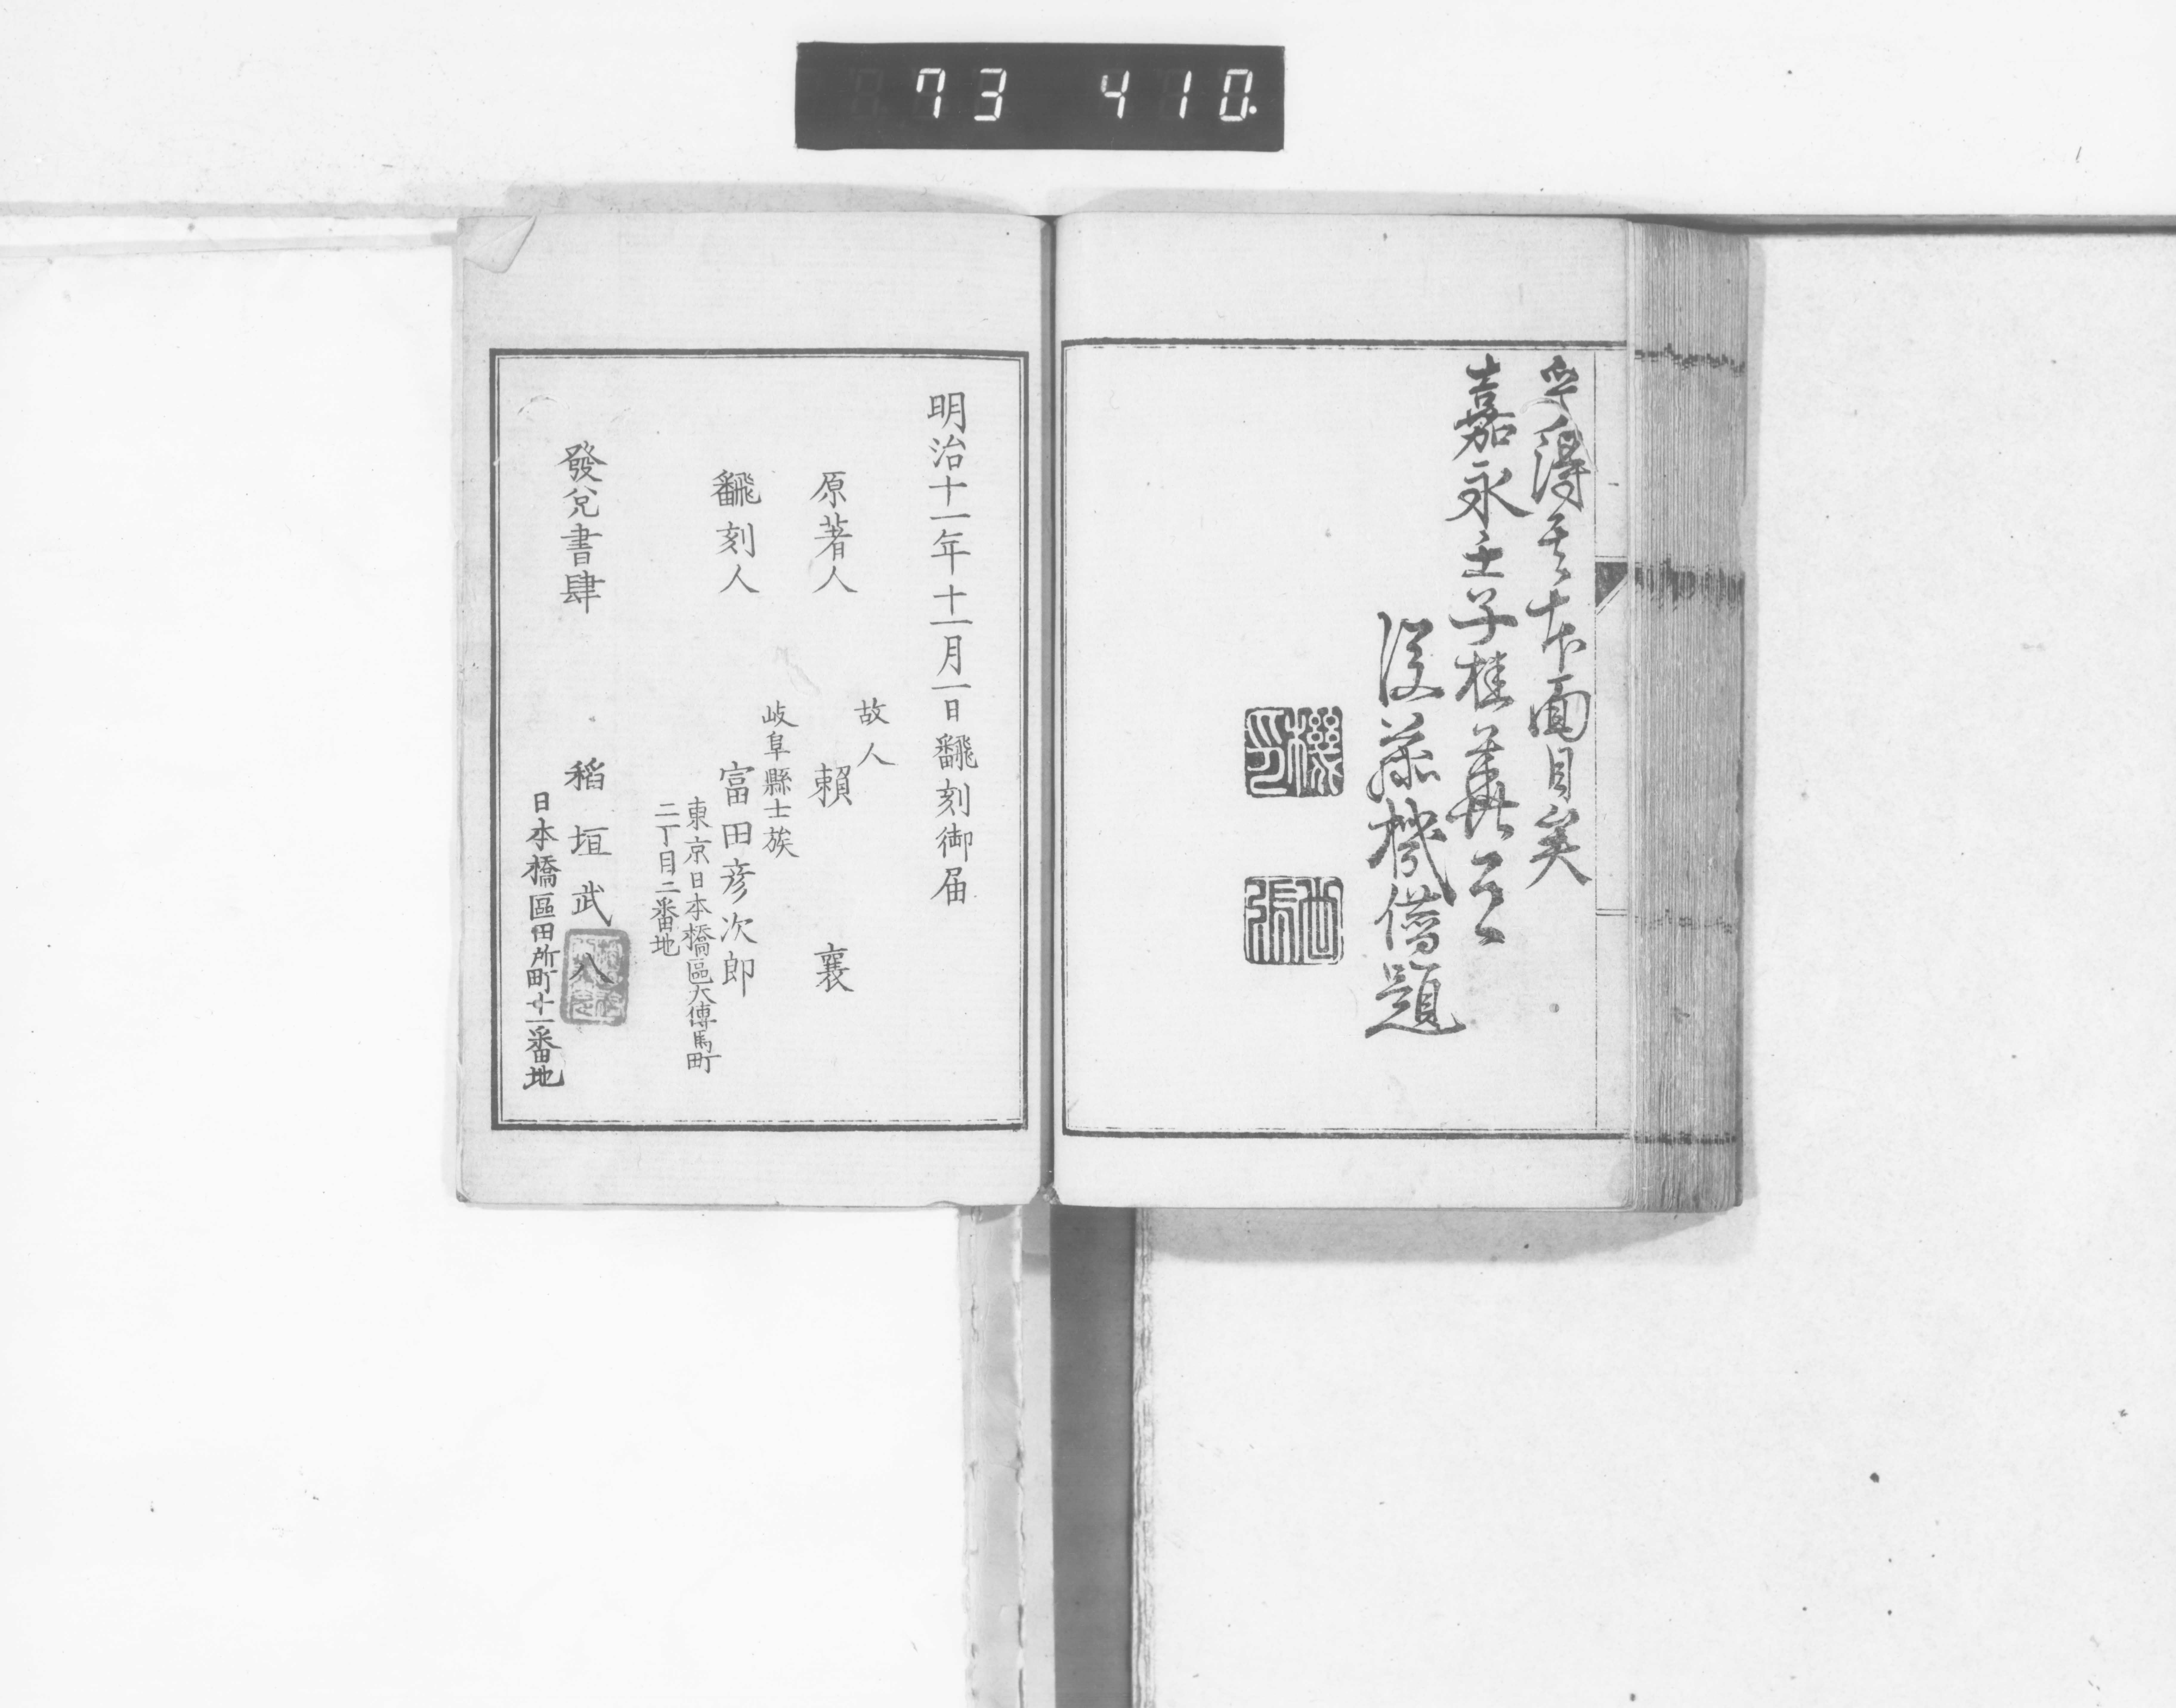 73 410.
乎得其本面目矣
嘉永壬子桂華月
後藤機僭題
明治十一年十一月一日飜刻御届
故人
原著人 賴 襄
岐阜縣士族
飜刻人 富田彦次郎
東京日本橋區大傳馬町
二丁目二番地
發兌書肆 稻垣武八
日本橋區田所町廿一番地